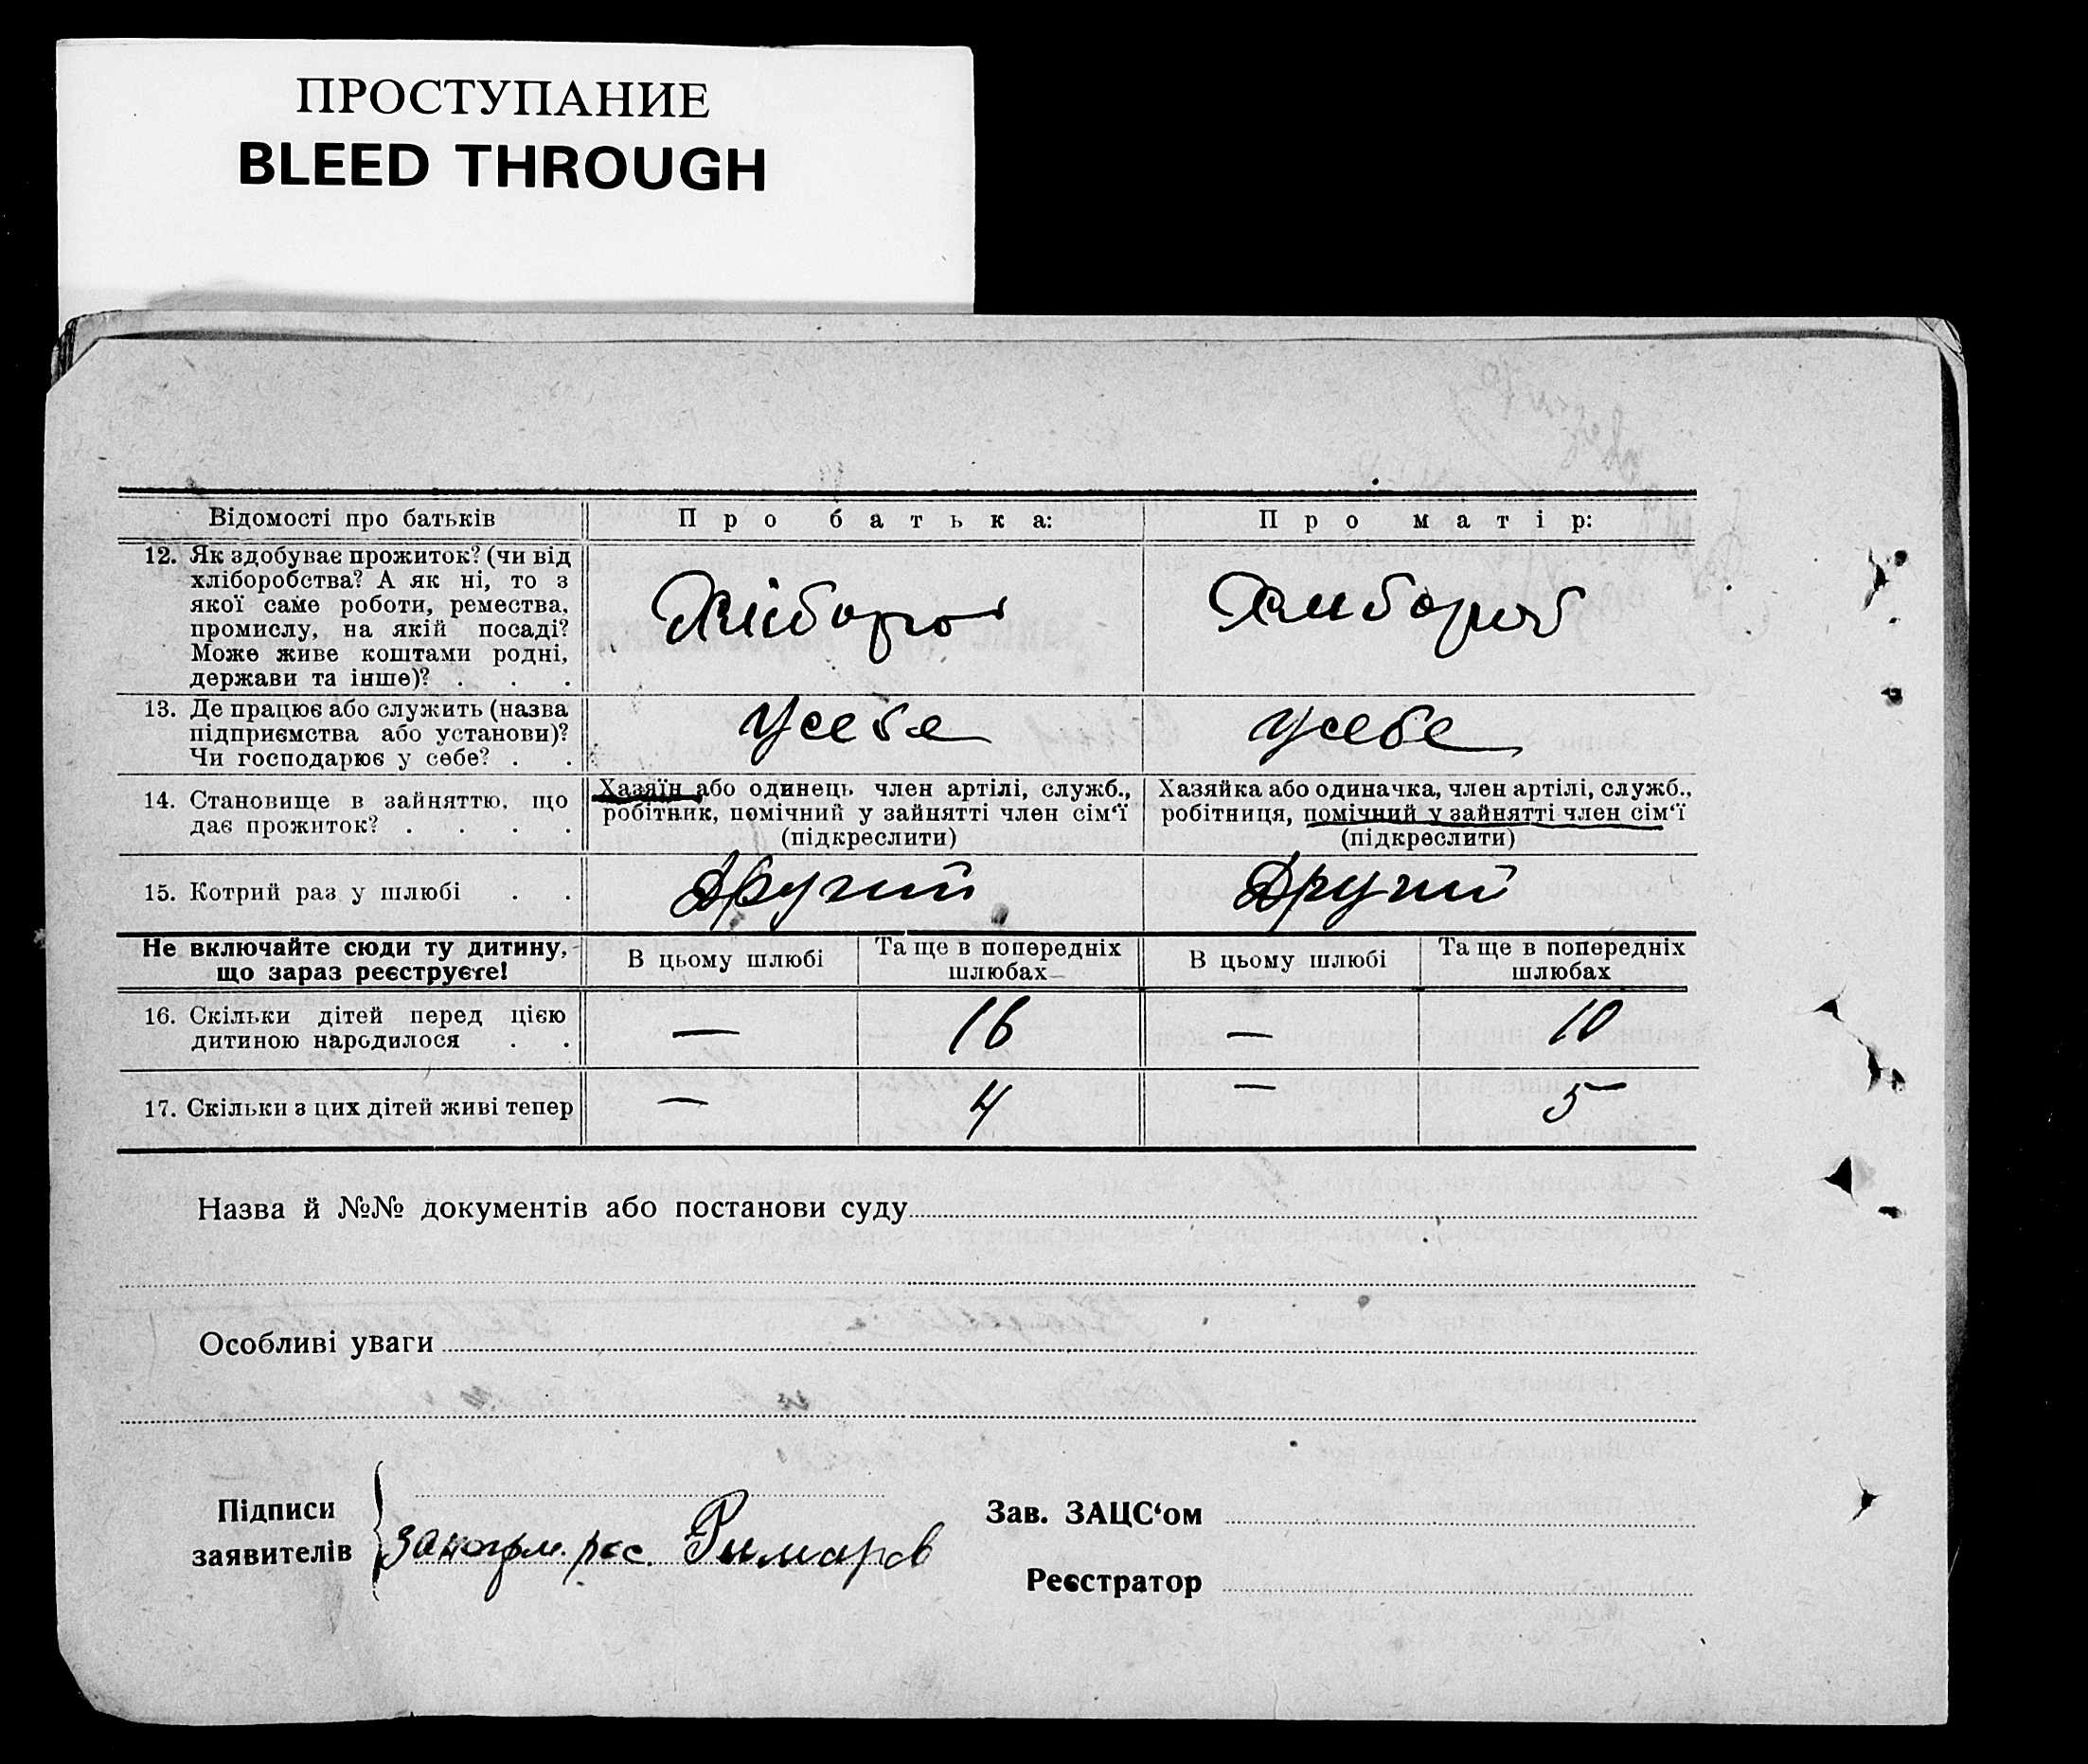 ПРОСТУПАНИЕ
BLEED THROUGH
Відомості про батьків
Про батька:
Про матір:
12. Як здобуває прожиток? (чи від
хліборобства? А як ні, то з
якої саме роботи, ремества,
промислу, на якій посаді?
Може живе коштами родні,
держави та інше)? . . .
Хлібороб
Хлибороб
13. Де працює або служить (назва
підприємства або установи)?
Чи господарює у себе? . .
Усебе
Усебе
14. Становище в зайняттю, що
дає прожиток? . . . .
Хазяїн або одинець член артілі, служб.,
робітник, помічний у зайнятті член сім‘ї
(підкреслити)
Хазяйка або одиначка, член артілі, служб.,
робітниця, помічний у зайнятті член сім‘ї
(підкреслити)
15. Котрий раз у шлюбі . .
Другий
Другий
Не включайте сюди ту дитину,
що зараз реєструєте!
В цьому шлюбі
Та ще в попередніх
шлюбах
В цьому шлюбі
Та ще в попередніх
шлюбах
16. Скільки дітей перед цією
дитиною народилося . .
—
16
—
10
17. Скільки з цих дітей живі тепер
—
4
—
5
Назва й №№ документів або постанови суду
Особливі уваги
Підписи
заявителів
Римаров
Зав. ЗАЦС‘ом
Реєстратор